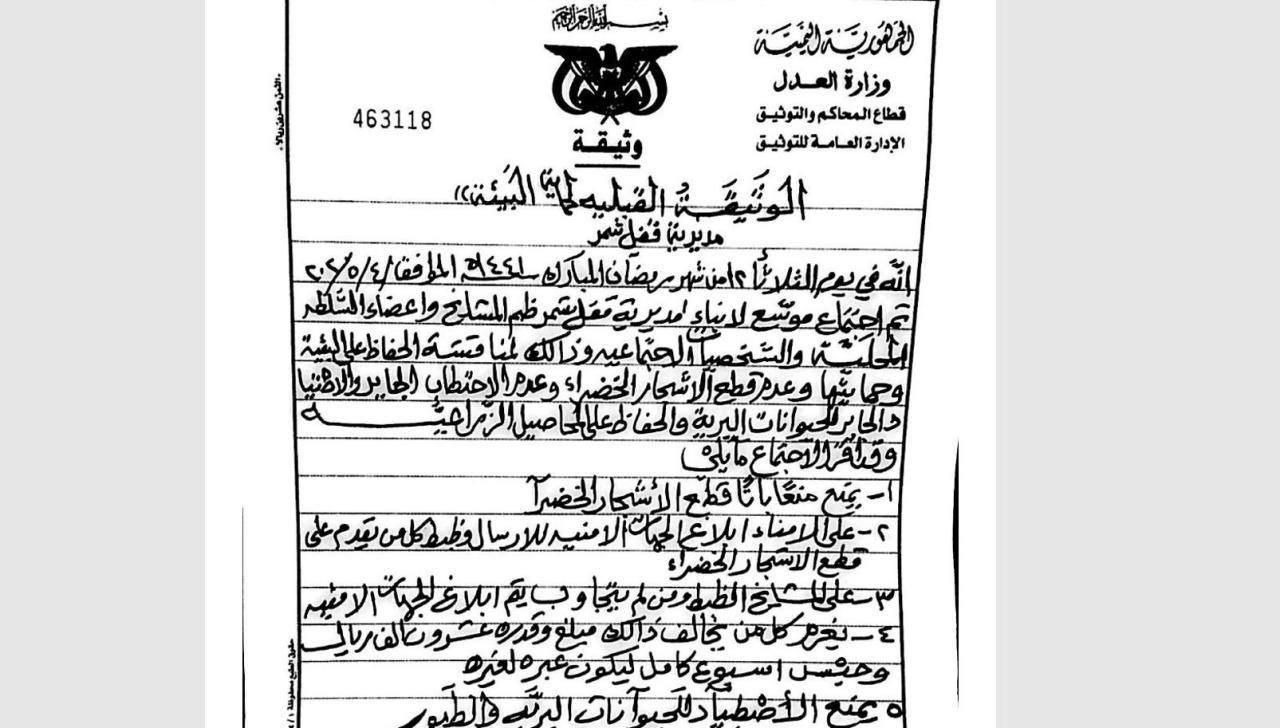 بسم الله الرحمن الرحيم
الجمهورية اليمنية
وزارة العدل
قطاع المحاكم والتوثيق
الإدارة العامة للتوثيق
463118
وثيقة
الوثيقة القبليه لحماية البيئة))
مديرية قفل شمر
انه في يوم الثلاثاء ١٢من شهر رمضان المبارك سنة ١٤٤١ه الموافق ٤/٥/٢٠٢٠
تم اجتماع موسع لابناء مديرية قفل شمر ظم المشائخ واعضاء السلطه
المحلية والشخصيات الاجتماعيه وذالك لمناقشة الحفاظ على البئية
وحمايتها وعدم قطع الاشجار الخضراء وعدم الاحتطاب الجاير والاصطيا
د الجاير للحيوانات البرية والحفاظ على المحاصيل الزراعية
وقد اقر الاجتماع مايلي
١- يمنع منعًا باتًا قطع الأشجار الخضرآ
٢- على الامناء ابلاغ الجهات الامنيه للارسال وظبط كل من يقدم على
قطع الاشجار الخضراء
٣- على المشايخ الظبط ومن لم يتجاوب يتم ابلاغ الجهات الامنيه
٤- يغرم كل من يخالف ذالك مبلغ وقدره عشرون الف ريالي
وحبس اسبوع كامل ليكون عبره لغيره
٥ يمنع الأصطياد للحيوآنات البريه والطيور
الثمن عشرون ريالا
حقوق الطبع محفوظة